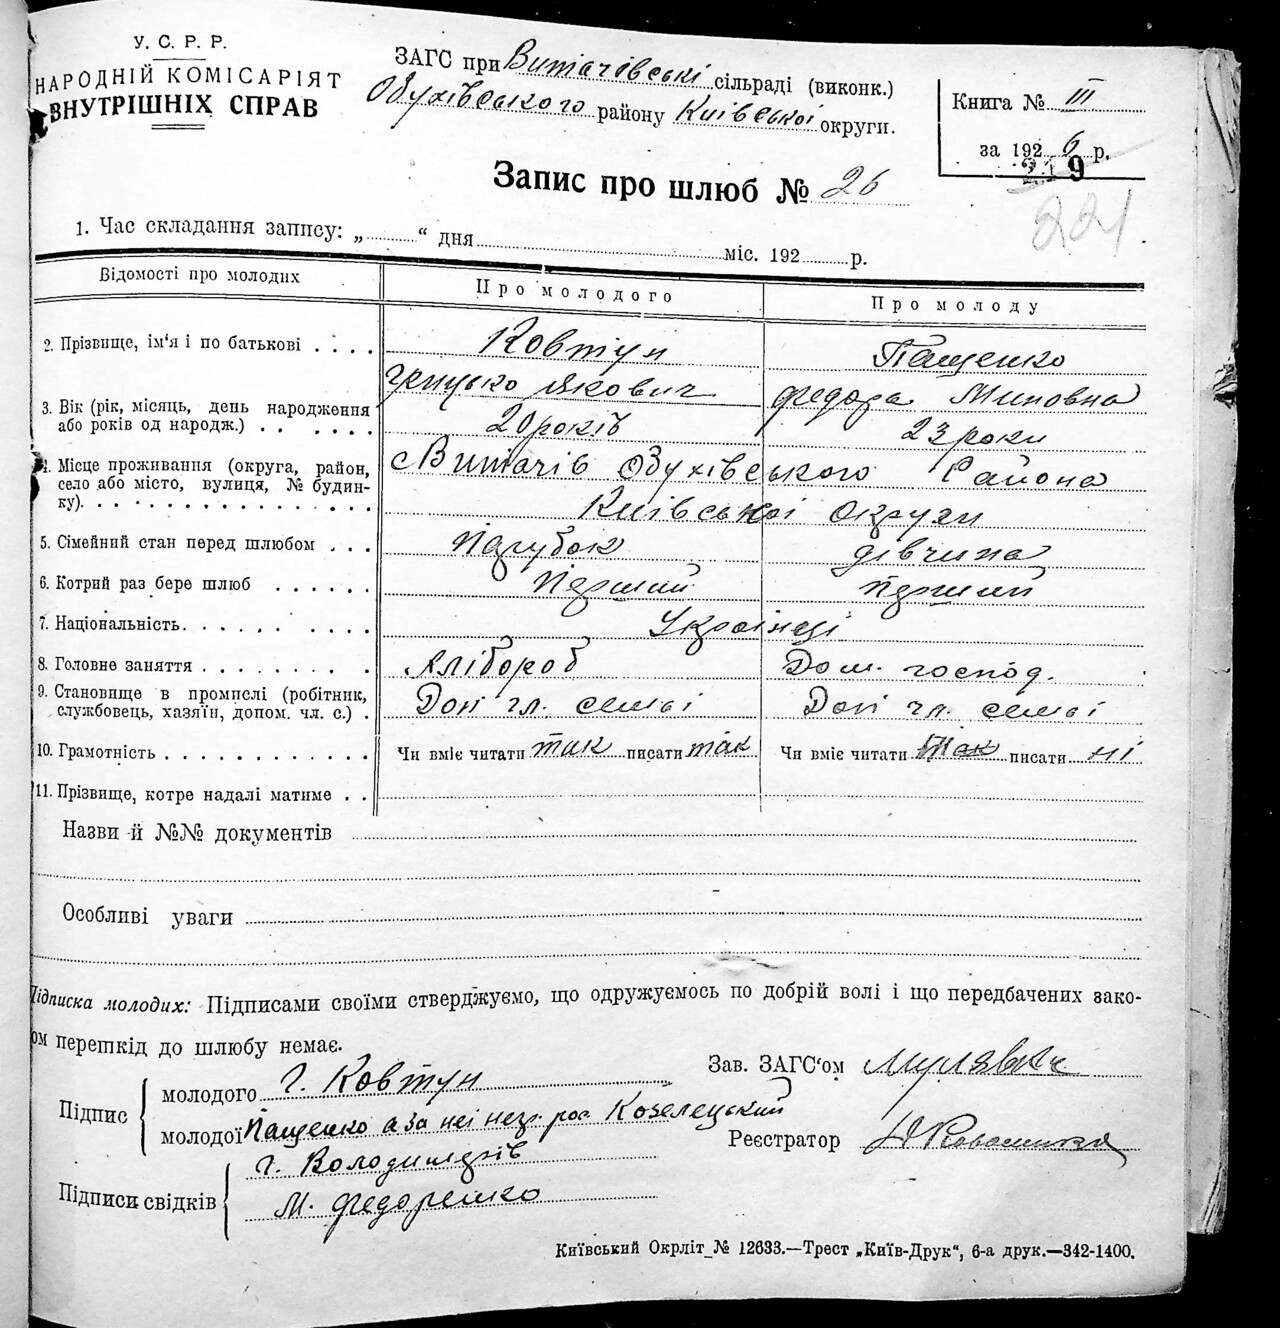 У. С. Р. Р.
НАРОДНІЙ КОМІСАРІЯТ
ВНУТРІШНІХ СПРАВ
ЗАГС при Витачівські сільраді (виконк.)
Обухівського району Київської округи.
Книга № III
за 1926 р.
219
221
Запис про шлюб № 26
1. Час складання запису: „ “ дня міс. 192 р.
Відомості про молодих Про молодого Про молоду
2. Прізвище, ім‘я і по батькові . . . . Ковтун Пащенко
Грицько Якович Федора Миновна
3. Вік (рік, місяць, день народження
або років од народж.) . . . . . . 20 років 23 роки
4. Місце проживання (округа, район,
село або місто, вулиця, № будин-
ку). с Витачів Обухівського Района
Київської Округи
5. Сімейний стан перед шлюбом . . . Парубок дівчина
6. Котрий раз бере шлюб . . . . . . Перший перший
7. Національність. Українці
8. Головне заняття Хлібороб Дом. господ.
9. Становище в промислі (робітник,
службовець, хазяїн, допом. чл. с.) . Доп гл. семьї Доп гл. семьї
10. Грамотність Чи вміє читати так писати так Чи вміє читати так писати ні
11. Прізвище, котре надалі матиме . .
Назви й №№ документів
Особливі уваги
Підписка молодих: Підписами своїми стверджуємо, що одружуємось по добрій волі і що передбачених зако-
ом перешкід до шлюбу немає.
Підпис
молодого Г. Ковтун
молодої Пащенко а за неї незр. рос. Козелецький
Зав. ЗАГС‘ом
Реєстратор
Підписи свідків
Г. Володимерів
М. Федоренко
Київський Окрліт № 12633.—Трест „Київ-Друк“, 6-а друк.—342-1400.